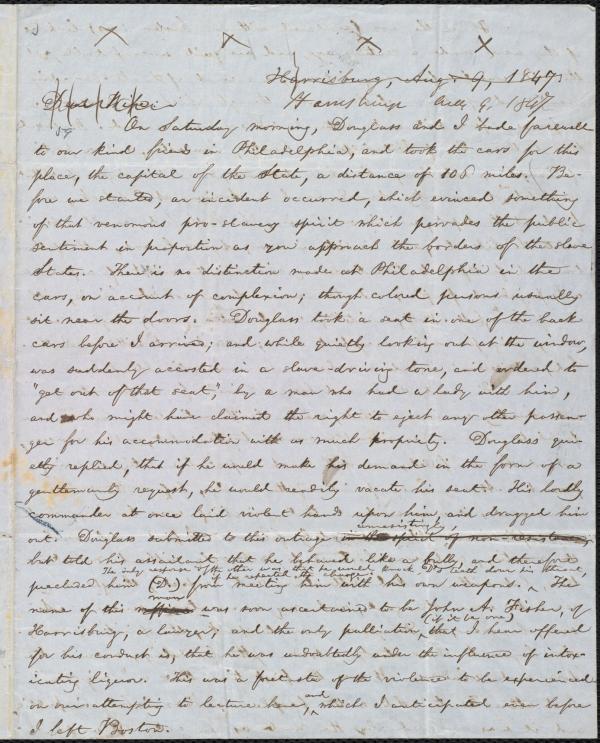 Harrisburg, Aug. 9, 1847.
Harrisburg Aug 9. 1847
On Saturday morning, Douglass and I bade farewell
to our kind friend in Philadelphia, and took the cars for this
place, the capital of the State, a distance of 106 miles. Be-
fore we started, an incident occurred, which evinced something
of that venomous pro-slavery spirit which pervades the public
sentiment in proportion as you approach the borders of the slave
States. There is no distinction made at Philadelphia in the
cars, on account of complexion; though colored persons usually
sit near the doors. Douglass took a seat in one of the back
cars before I arrived; and while quietly looking out at the window,
was suddenly accosted in a slave-driving tone, and ordered to
"get out of that seat," by a man who had a lady with him,
and who might have claimed the right to eject any other passen-
ger for his accommodation with as much propriety. Douglass qui-
etly replied, that if he would make his demand in the form of a
gentlemanly request, he would readily vacate his seat. His lordly
commander at once laid violent hands upon him, and dragged him
unresistingly,
out. Douglass submitted to this outrage in the spirit of non-resistance,
but told his assailant that he behaved like a bully, and therefore
The only response of the other was, that he would knock D's teeth down his throat
if he repeated the charge.
precluded him (D.) from meeting him with his own weapons. The
man
name of this ruffian was soon ascertained to be John A. Fisher, of
(if it be one)
Harrisburg, a lawyer; and the only palliation that I hear offered
for his conduct is, that he was undoubtedly under the influence of intox-
icating liquor. This was a foretaste of the violence to be experienced
and
on our attempting to lecture here, which I anticipated even before
I left Boston.